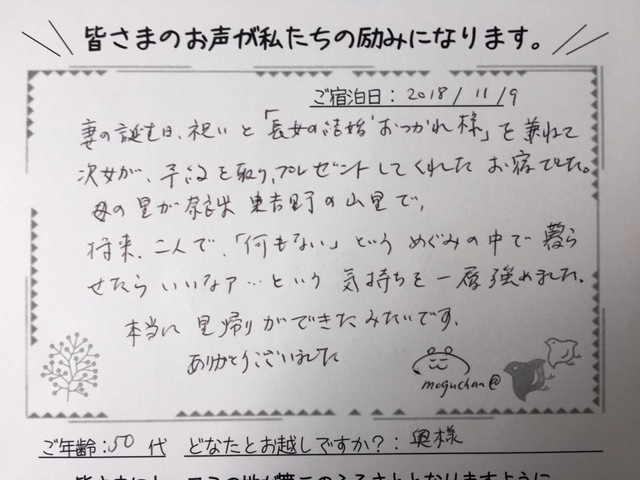 皆さまのお声が私たちの励みになります。
ご宿泊日：2018/11/9
妻の誕生日、祝いと「長女の結婚おつかれ様」を兼ねて
次女が、予約を取り、プレゼントしてくれたお宿でした。
母の里が奈良県東吉野の山里で、
将来、二人で、「何もない」というめぐみの中で暮ら
せたらいいなァ…という気持ちを一層強めました。
本当に里帰りができたみたいです。
ありがとうございました
moguchan@
ご年齢：50代 どなたとお越しですか？：奥様